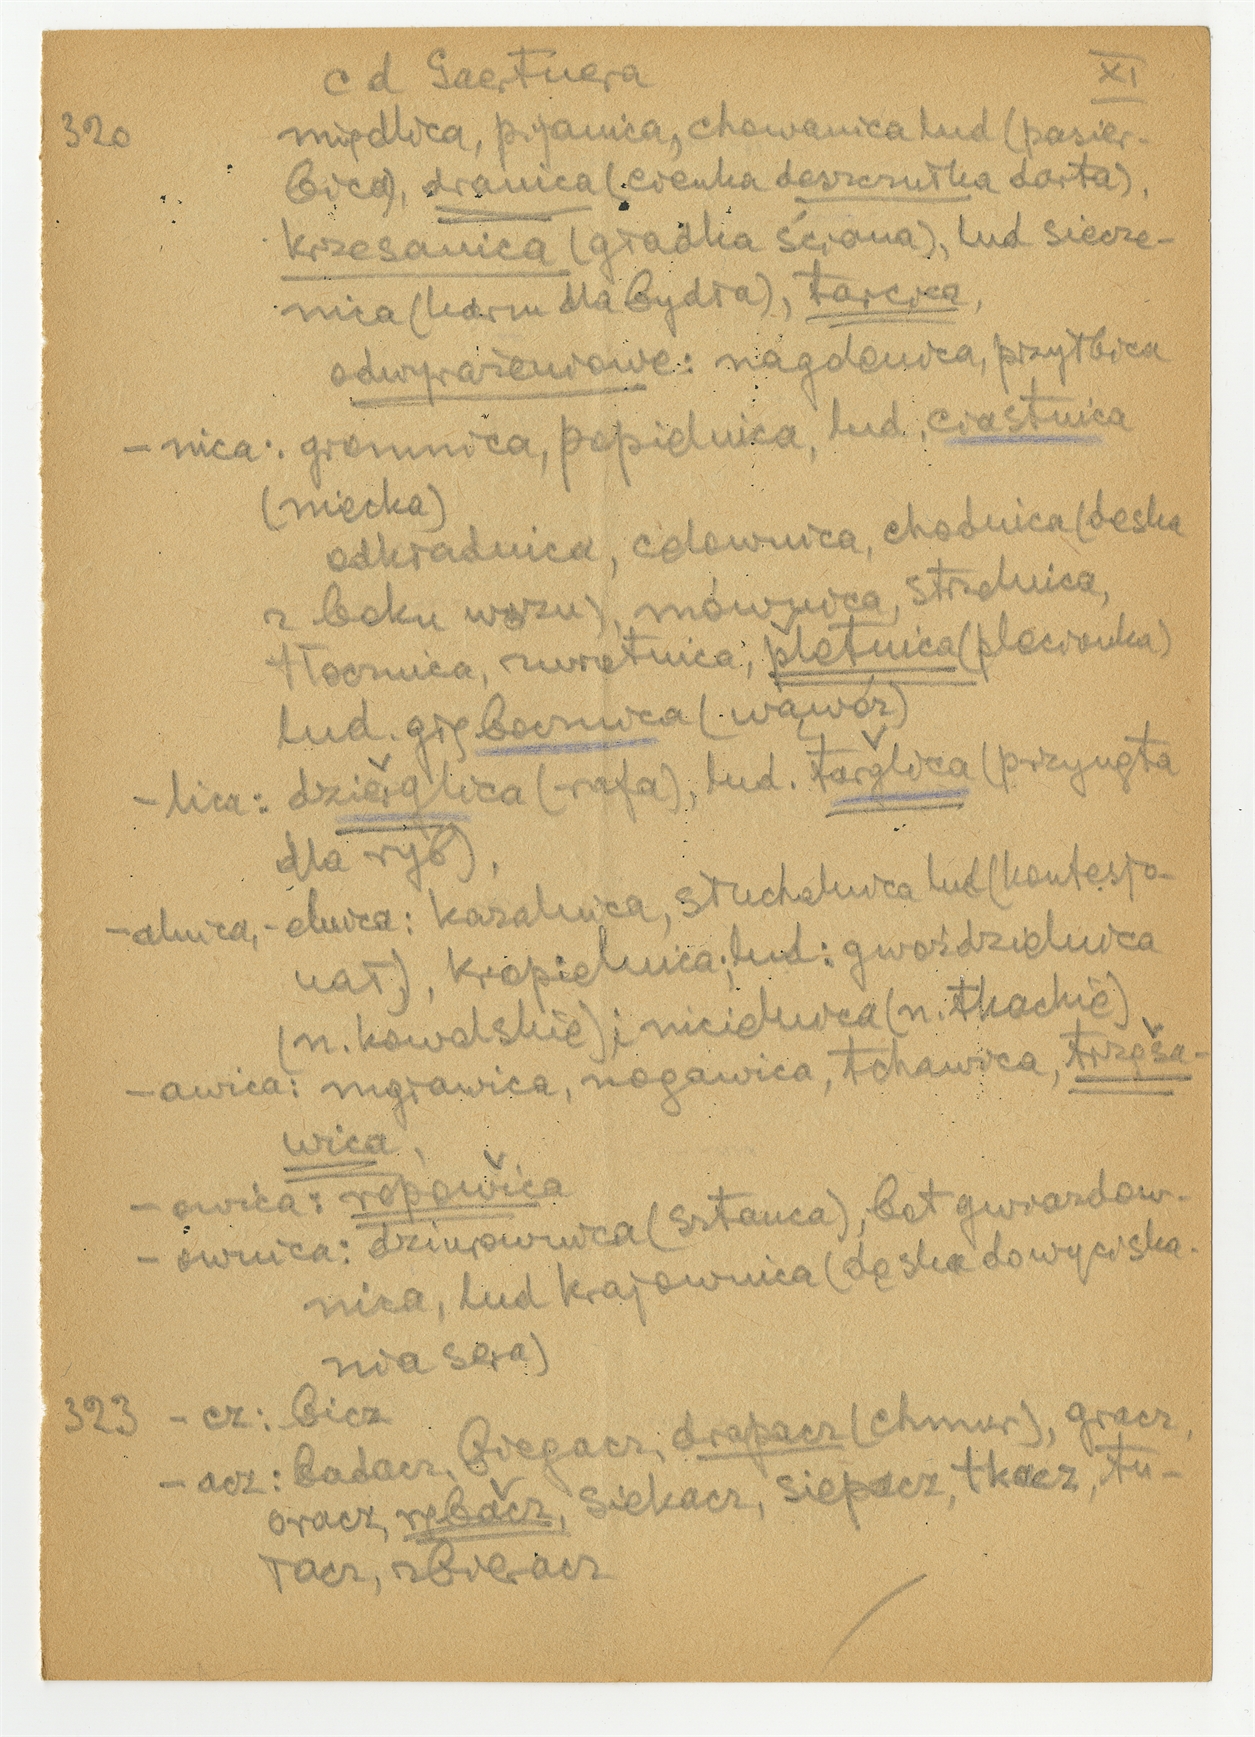 c d Gaertnera XI
320 międlica, pijanica, chowanica lud (pasier-
bica), dranica (cienka deszczułka darta),
krzesanica (gładka ściana), lud siecze-
nica (karm dla bydła), tarcica,
odwyrażeniowe: nagolenica, przyłbica
- nica: gromnica, popielnica, lud. ciastnica
(niecka)
odkładnica, celownica, chodnica (deska
z boku wozu), mównica, strzelnica,
tłocznica, zwrotnica, pletnica (plecionka)
lud. głębocznica (wąwóz)
- lica: dzierglica (rafa), lud. targlica (przynęta
dla ryb),
- alnica, - elnica: kazalnica, słuchalnica lud (konfesjo-
nał), kropielnica; lud: gwoździelnica
(n. kowalskie); nicielnica (n. tkackie)
- awica: mgławica, nogawica, tchawica, trzęsa-
wica,
- owica: ropowica
- ownica: dziurownica (sztanca), bot gwiazdow-
nica, lud krajownica (deska do wyciska-
nia sera)
323 - cz: bicz
- acz: badacz, biegacz, drapacz (chmur), gracz,
oracz, rębacz, siekacz, siepacz, tkacz, tu-
łacz, zbieracz